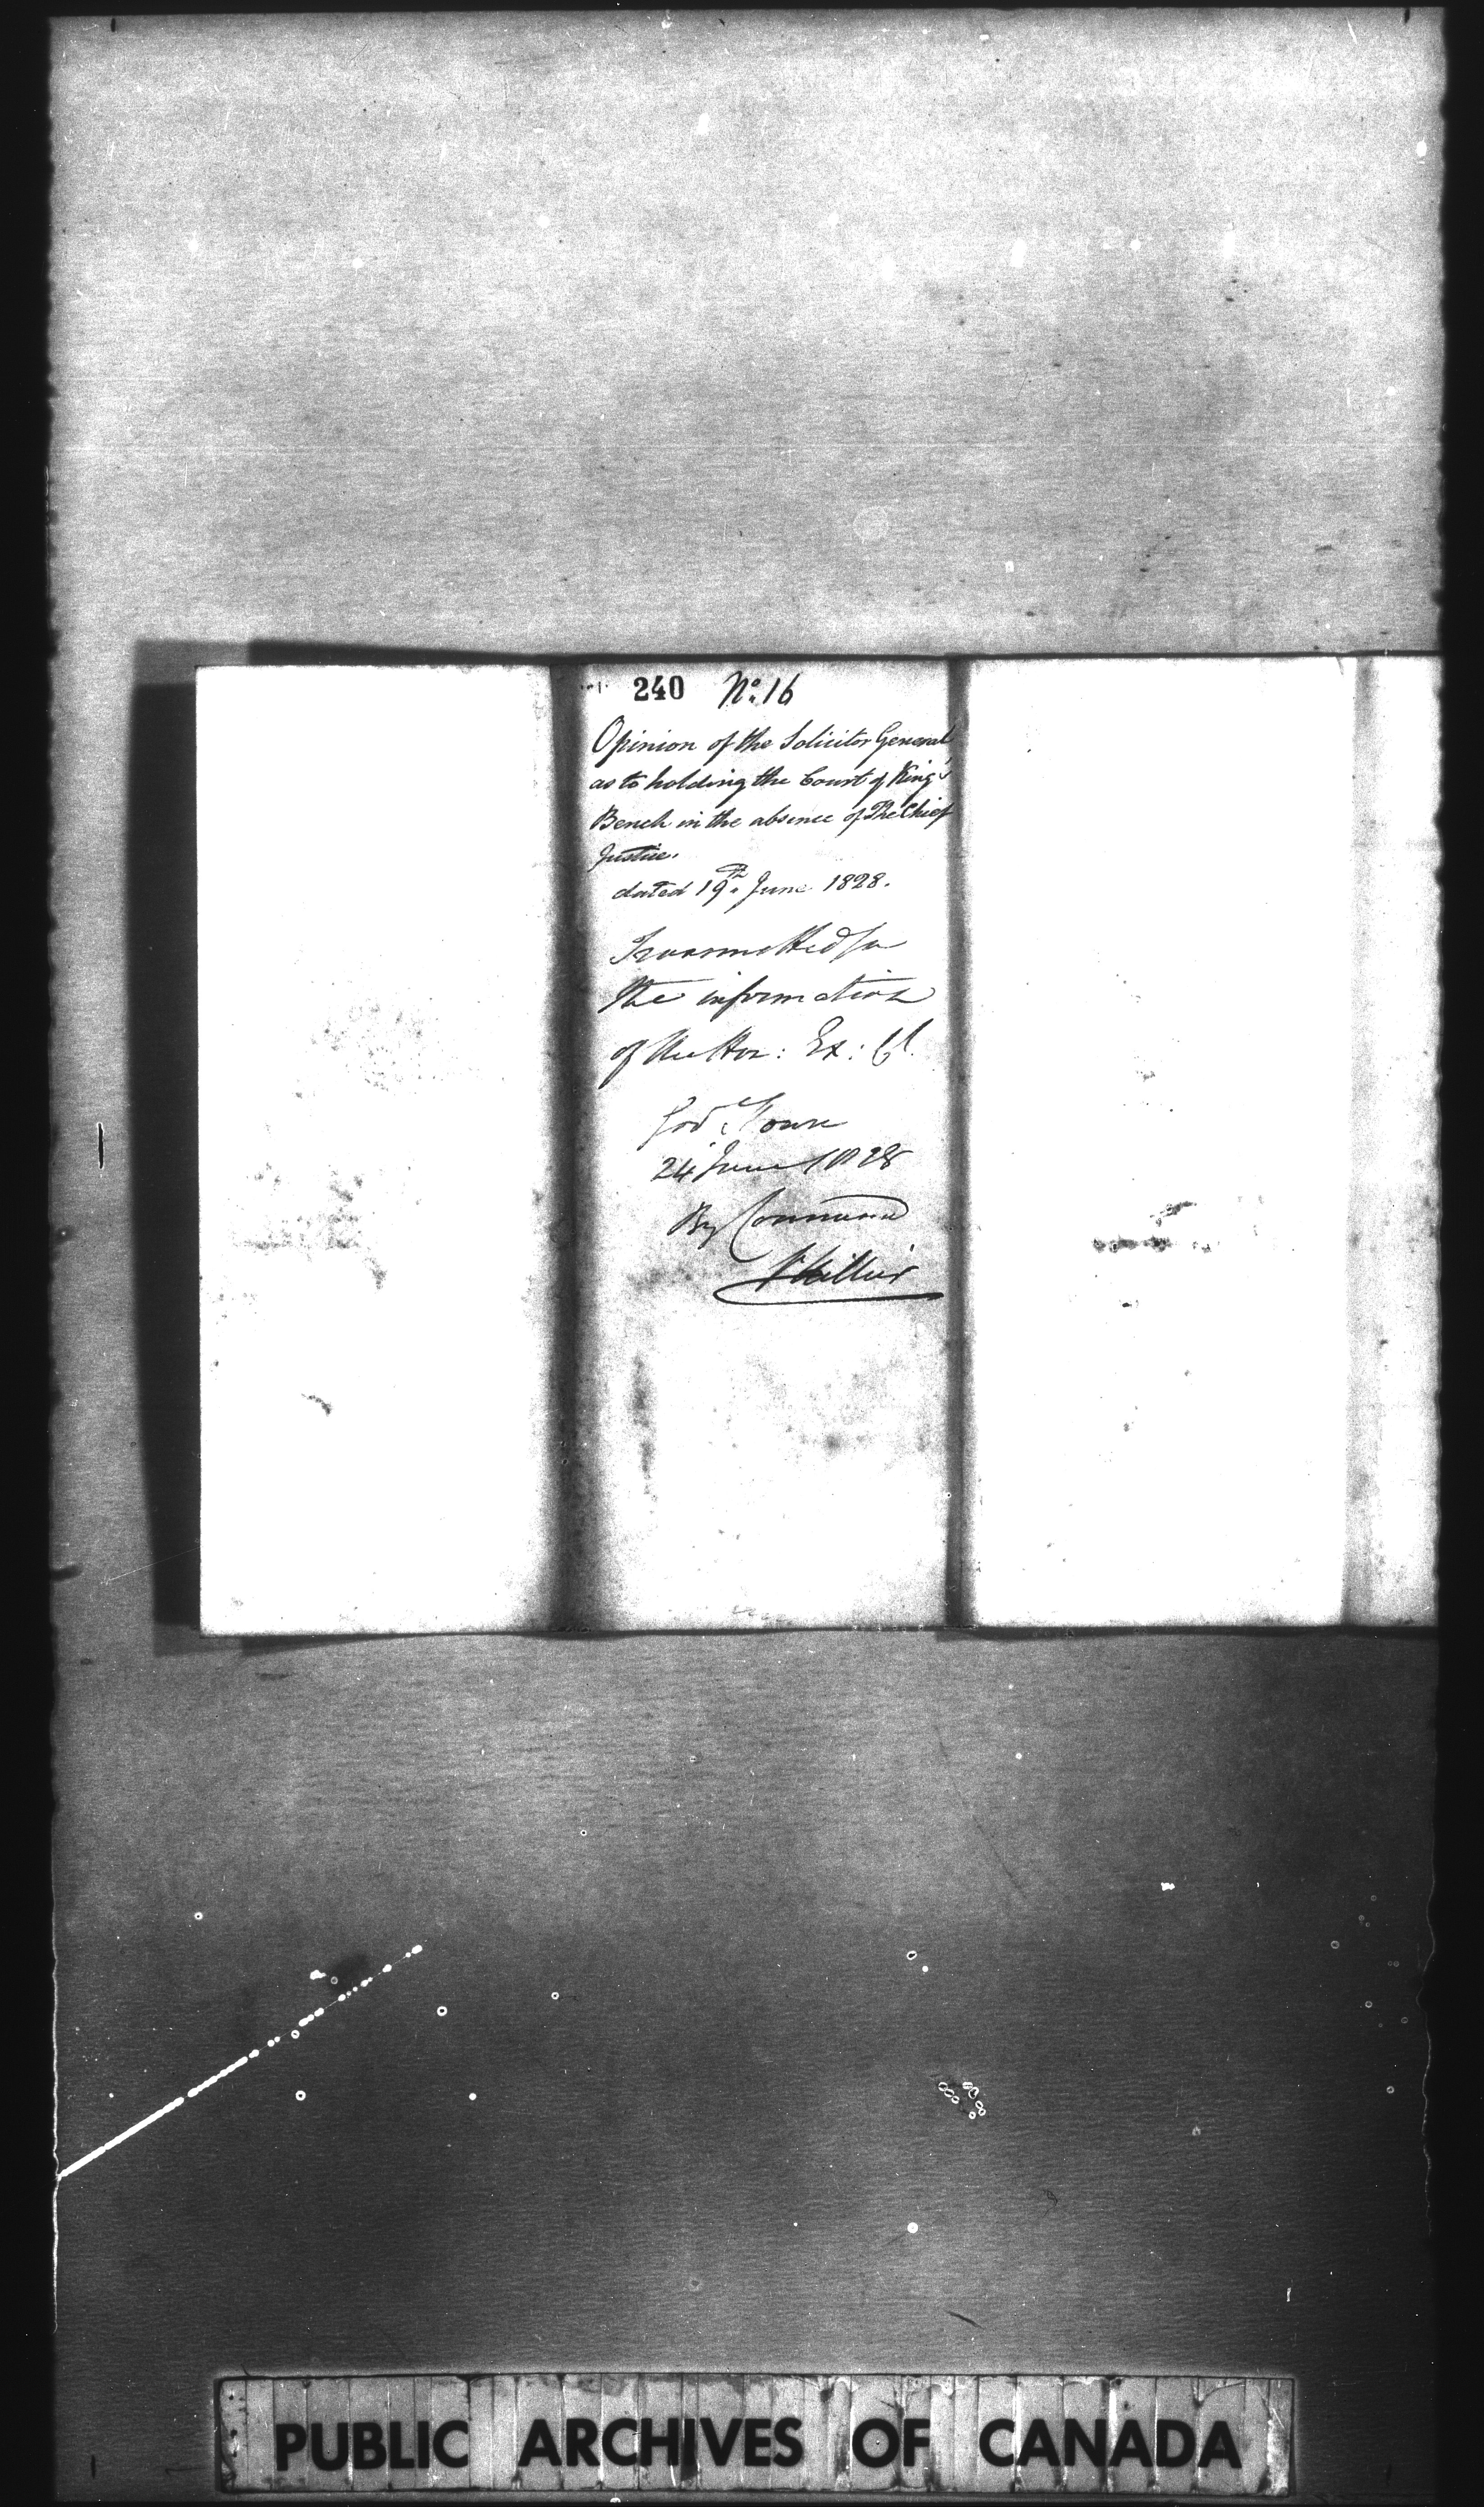 240 No. 16
Opinion of the Solicitor General
as to holding the Court of King's
Bench in the absence of The Chief
Justice.
dated 19th June 1828.
Transmitted for
the information
of the Hon: Ex: Cl.
Govt House
24 June 1828
By Command
Hillier
PUBLIC ARCHIVES OF CANADA